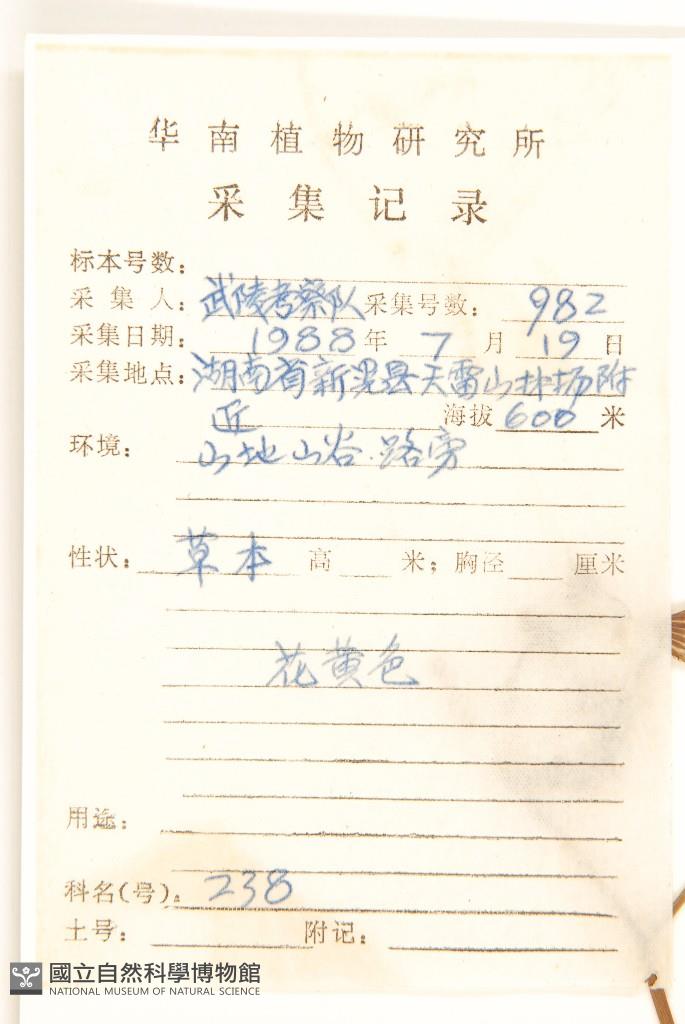 华南植物研究所
采集记录
标本号数：
采集人：武陵考察队 采集号数：982
采集日期：1988年7月19日
采集地点：湖南省新晃县天雷山林场附
近 海拔600米
环境：山地山谷.路旁
性状：草本 高 米；胸径 厘米
花黄色
用途：
科名(号)：238
土号： 附记：
國立自然科學博物館
NATIONAL MUSEUM OF NATURAL SCIENCE